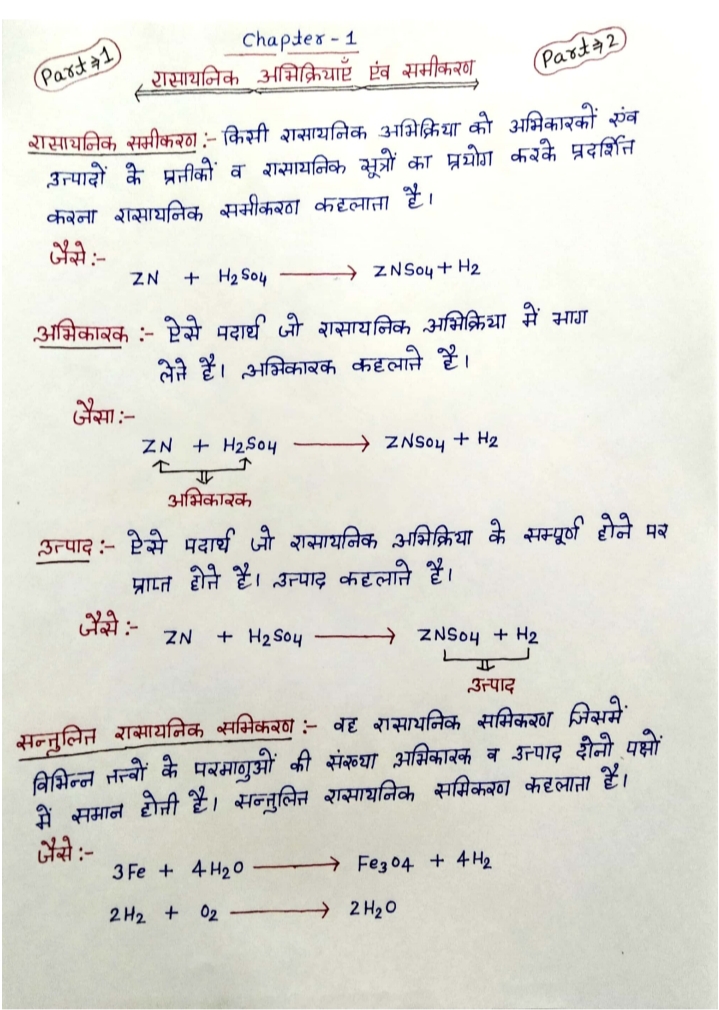 Chapter - 1
Part⇒1
Part⇒2
रासायनिक अभिक्रियाएँ एंव समीकरण
रासायनिक समीकरण :- किसी रासायनिक अभिक्रिया को अभिकारकों एंव
उत्पादों के प्रतीकों व रासायनिक सूत्रों का प्रयोग करके प्रदर्शित
करना रासायनिक समीकरण कहलाता है।
जैसे :-
ZN + H2SO4 ⟶ ZNSO4 + H2
अभिकारक :- ऐसे पदार्थ जो रासायनिक अभिक्रिया में भाग
लेते है। अभिकारक कहलाते है।
जैसा :-
ZN + H2SO4 ⟶ ZNSO4 + H2
अभिकारक
उत्पाद :- ऐसे पदार्थ जो रासायनिक अभिक्रिया के सम्पूर्ण होने पर
प्राप्त होते है। उत्पाद कहलाते है।
जैसे :- ZN + H2SO4 ⟶ ZNSO4 + H2
उत्पाद
सन्तुलित रासायनिक समिकरण :- वह रासायनिक समिकरण जिसमें
विभिन्न तत्वों के परमाणुओं की संख्या अभिकारक व उत्पाद दोनो पक्षों
में समान होती है। सन्तुलित रासायनिक समिकरण कहलाता है।
जैसे :-
3Fe + 4H2O ⟶ Fe3O4 + 4H2
2H2 + O2 ⟶ 2H2O